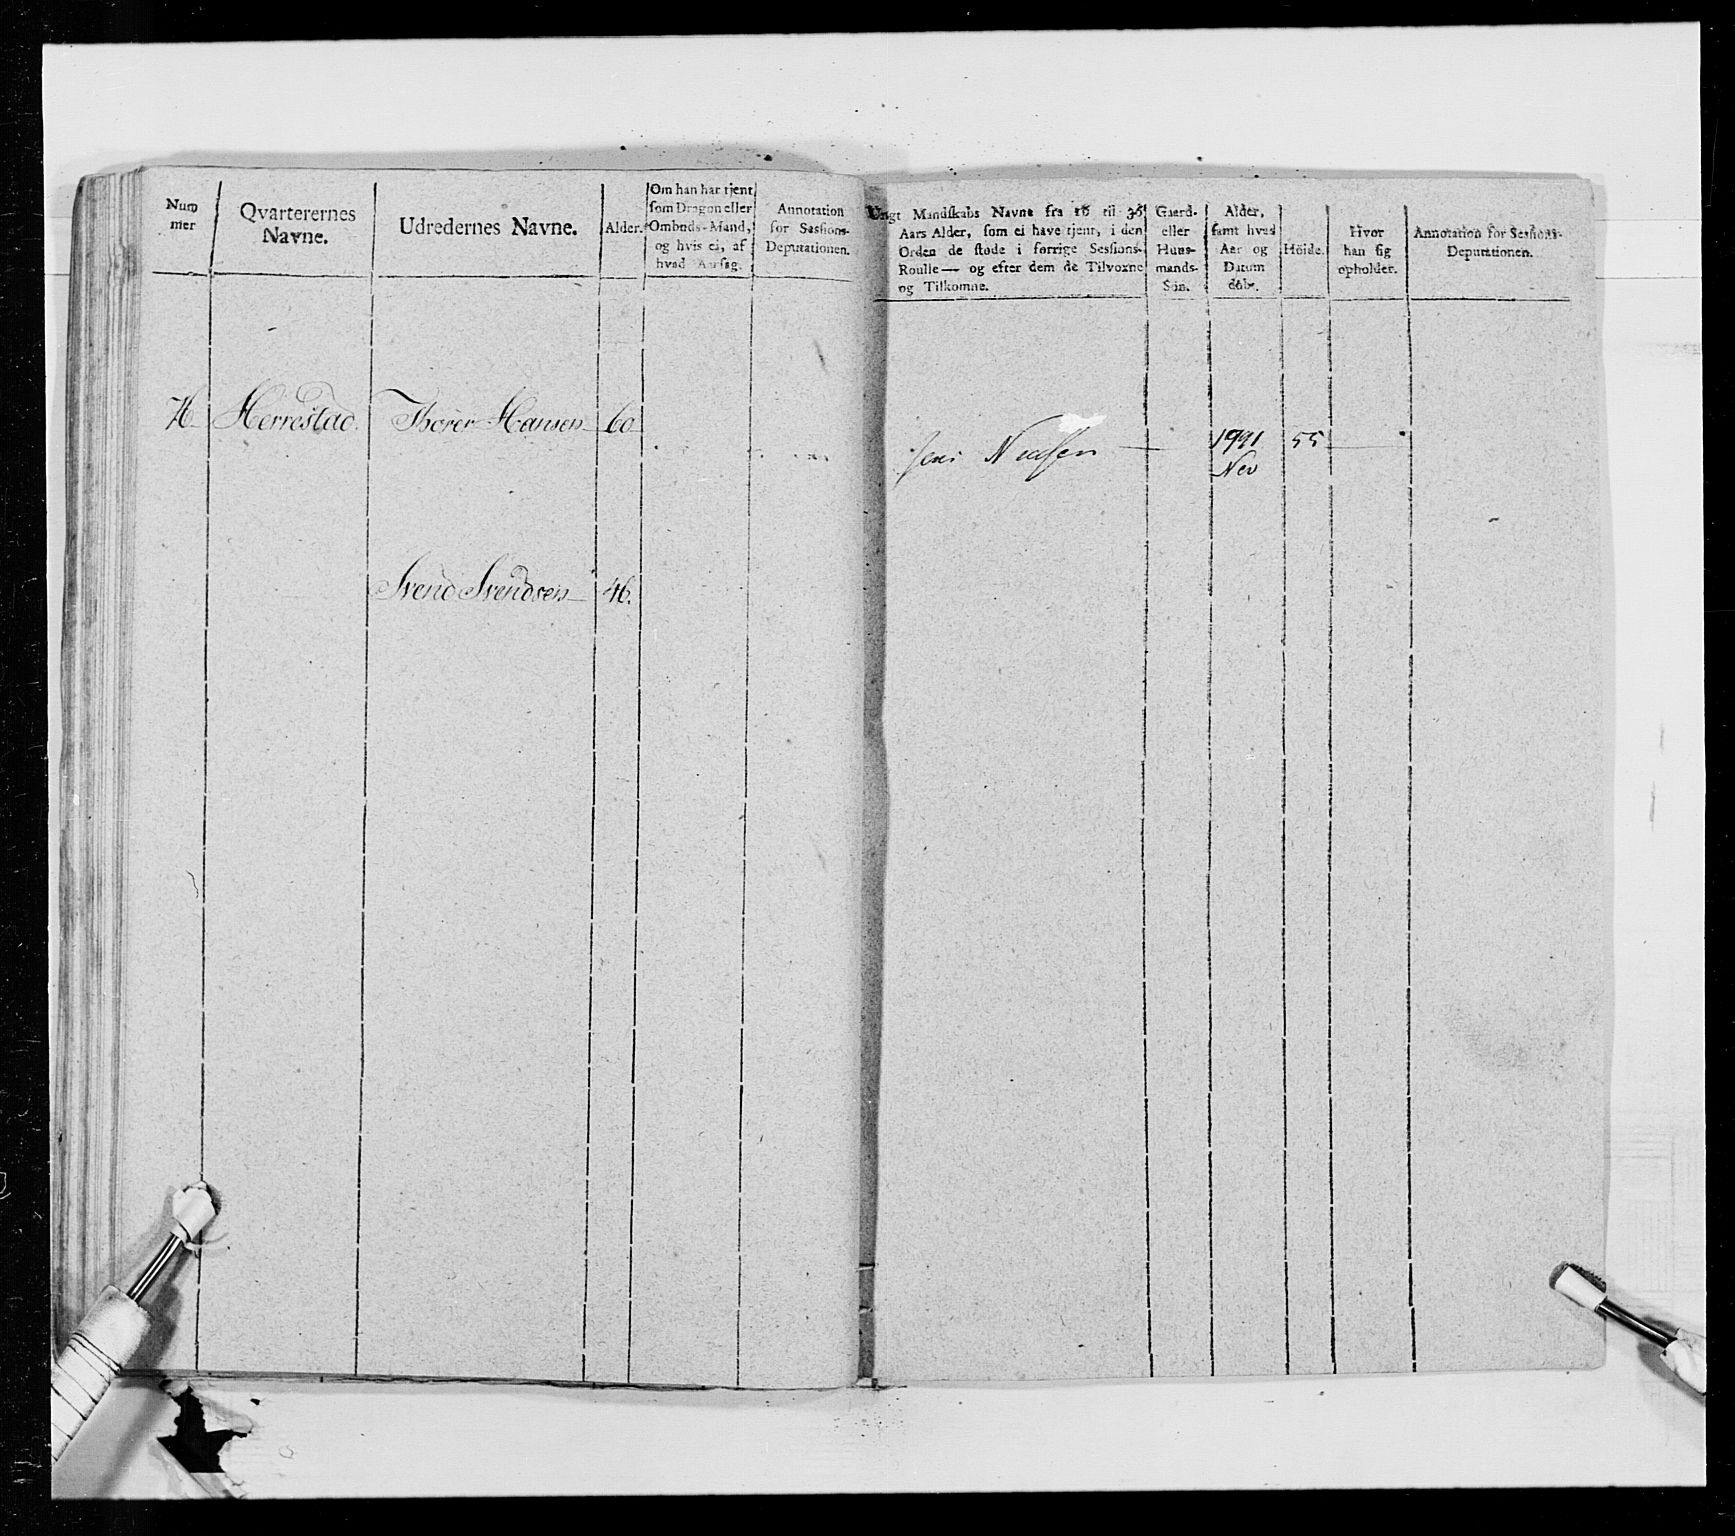 Num
mer
Qvarterernes
Navne.
Udredernes Navne.
Alder.
Om han har tjent
som Dragon eller
Ombuds-Mand,
og hvis ei, af
hvad Aarsag.
Annotation
for Sessions-
Deputationen.
Ungt Mandskabs Navne fra 16 til 36
Aars Alder, som ei have tjent, i den
Orden de stode i forrige Sessions-
Roulle — og efter dem de Tilvoxne
og Tilkomne.
Gaard-
eller
Huus-
mands-
Søn.
Alder,
samt hvad
Aar og
Datum
døbt.
Höide.
Hvor
han sig
opholder.
Annotation for Sessions-
Deputationen.
76. Herrestad. Thorer Hansen 60
Jens 1791 55
Nov
Svend Svendsen 46.